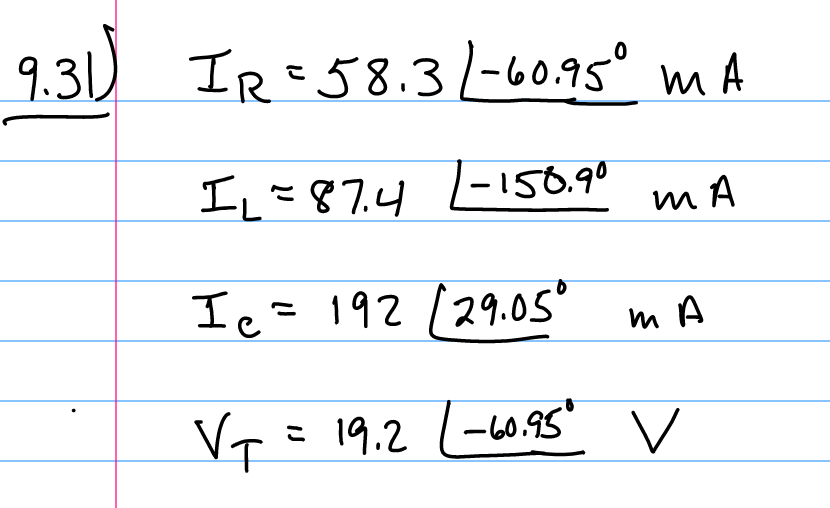 9.31) I_R = 58.3 ∠-60.95° mA
I_L = 87.4 ∠-150.9° mA
I_C = 192 ∠29.05° mA
V_T = 19.2 ∠-60.95° V